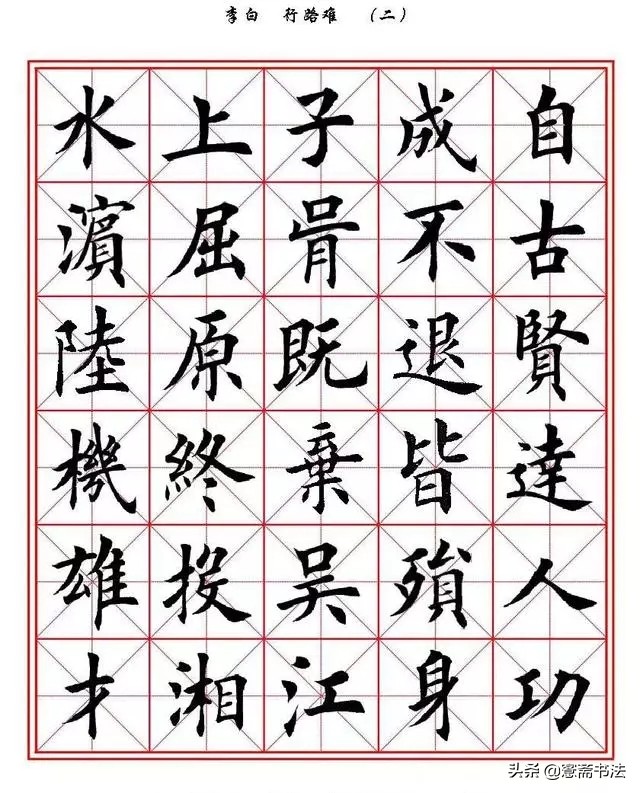 李白 行路难 (二)
自古賢達人功
成不退皆殞身
子胥既棄吴江
上屈原終投湘
水濵陸機雄才
头条 @憲斋书法